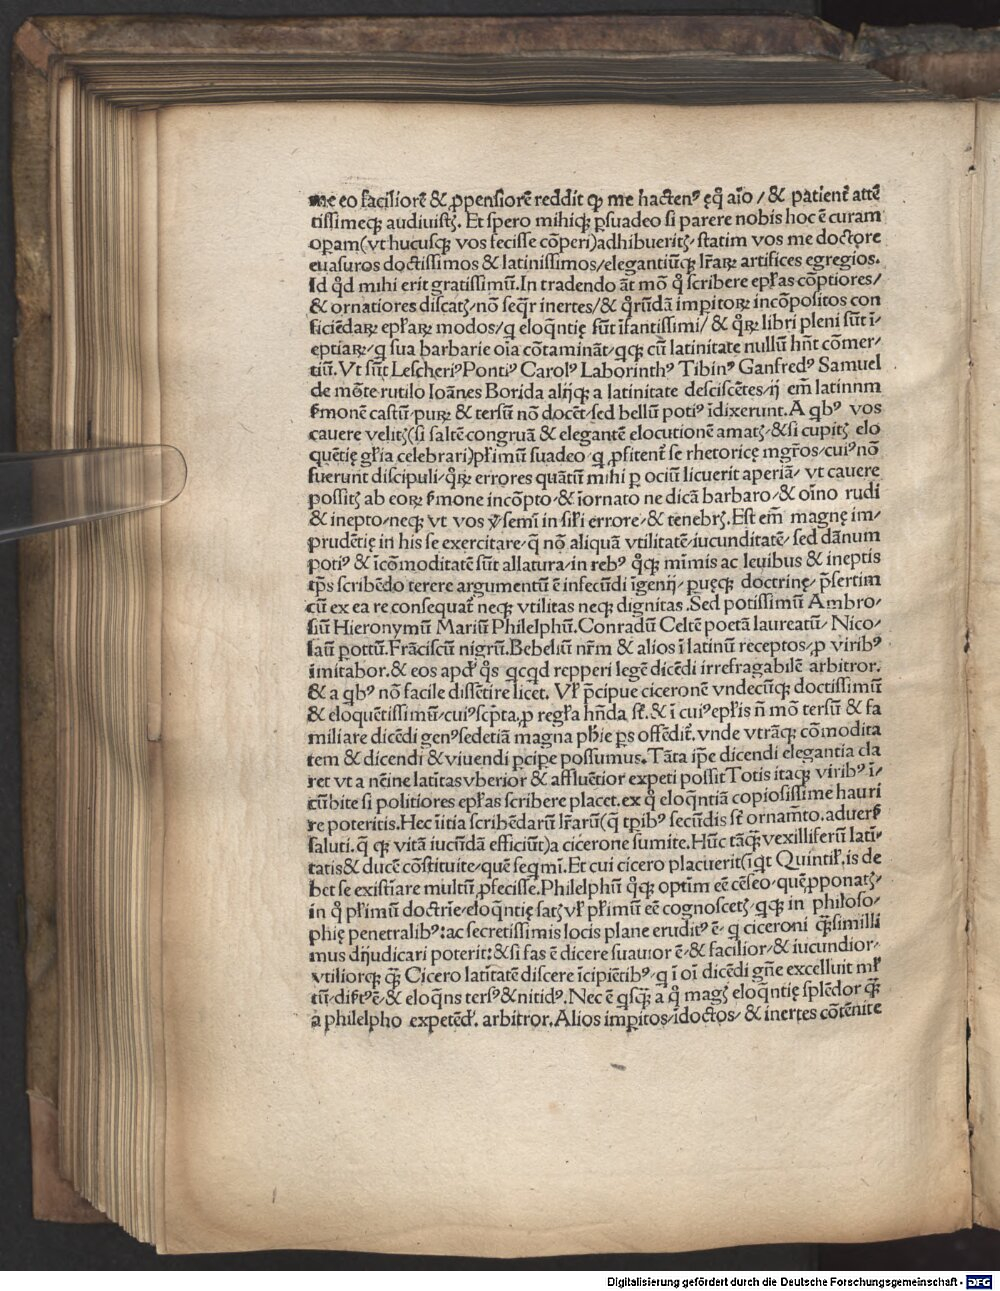 me eo faciliorē & ꝓpensiorē reddit ꝙ me hactenꝰ ęq̊ aīo / & patient᷑ attē
tissimeqꝫ audiuistꝭ. Et spero mihiqꝫ ꝑsuadeo si parere nobis hoc ē curam
opam(vt hucusqꝫ vos fecisse cōperi)adhibueritꝭ/ statim vos me doctore
euasuros doctissimos & latinissimos/elegantiūqꝫ lr̄aꝝ artifices egregios.
Id qd̓ mihi erit gratissimū.In tradendo āt mō q̊ scribere epl̓as cōptiores/
& ornatiores discatꝭ/nō seqr̄ inertes/& qr̄ūdā impitoꝝ incōpositos con
ficiēdaꝝ epl̓aꝝ modos/q eloqn̄tię sūt īfantissimi/ & qꝝ libri pleni sūt ī/
eptiaꝝ/q sua barbarie oīa cōtaminān̄t/qqꝫ cū latinitate nullū hn̄t cōmer/
tiū. Vt sūt Lescheriꝰ Pontiꝰ Carolꝰ Laborinthꝰ Tibinꝰ Ganfredꝰ Samuel
de mōte rutilo Ioānes Borida alijqꝫ a latinitate desciscētes/ij em̄ latinnm
ẜmonē castū/puꝝ & tersū nō docēt/sed bellū potiꝰ īdixerunt. A qbꝰ vos
cauere velitꝭ(si saltē congruā & elegantē elocutionē amatꝭ/&si cupitꝭ elo
quētię gl̓ia celebrari)pl̓imū suadeo q ꝓfitent᷑ se rhetoricę mgr̄os/cuiꝰ nō
fuerunt discipuli/qꝝ errores quātū mihi ꝑ ociū licuerit aperiā/ vt cauere
possitꝭ ab eoꝝ ẜmone incōpto/& īornato ne dicā barbaro/& oīno rudi
& inepto/neqꝫ vt vos ꝟsemī in sil̓i errore/& tenebrꝭ.Est em̄ magnę im/
prudētię in his se exercitare/q̄ nō aliquā vtilitatē/iucunditatē/ sed dānum
potiꝰ & īcōmoditatē sūt allatura/in rebꝰ qqꝫ mīmis ac leuibus & ineptis
tp̄s scribēdo terere argumentū ē infecūdi īgenij/ ꝑuęqꝫ doctrinę/ p̄sertim
cū ex ea re consequat᷑ neqꝫ vtilitas neqꝫ dignitas .Sed potissimū Ambro/
siū Hieronymū Mariū Philelphū.Conradū Celtē poetā laureatū/ Nico/
laū pottū.Frāciscū nigrū.Bebeliū nr̄m & alios ī latinū receptos/ꝓ viribꝰ
imitabor.& eos apd̓ q̊s qcqd repperi legē dicēdi irrefragabilē arbitror.
& a qbꝰ nō facile dissētire licet. Vl̓ p̄cipue ciceronē vndecūqꝫ doctissimū
& eloquētissimū/cuiꝰ scp̄ta,ꝓ regl̓a hn̄da st̄.& ī cuiꝰ epl̓is n̄ mō tersū & fa
miliare dicēdi genꝰ sed etiā magna phīe ps offēdit᷑. vnde vtrāqꝫ cōmodita
tem & dicendi & viuendi ꝑcipe possumus.Tāta ip̄e dicendi elegantia cla
ret vt a nēine latītas vberior & affluētior expeti possit Totis itaqꝫ viribꝰ ī/
cūbite si politiores epl̓as scribere placet. ex q̊ eloqn̄tiā copiosissime hauri
re poteritis.Hec īitia scribēdarū lr̄arū(q̄ tpibꝰ secūdis st̄ ornam̄to.aduerẜ
saluti.q̄ qꝫ vitā iucūdā efficiūt)a cicerone sumite.Hūc tāqꝫ vexilliferū latī
tatis& ducē cōstituite/quē seqmī.Et cui cicero placuerit(īqt Quintil̓.is de
bet se existīare multū ꝓfecisse.Philelphū qqꝫ optīm eē cēseo/quē ꝓponatꝭ/
in q̊ pl̓imū doctrīe/eloqn̄tię satꝭ vl̓ pl̓imū eē cognoscetꝭ/qqꝫ in philoso/
phię penetralibꝰ:ac secretissimis locis plane eruditꝰ ē/ q ciceroni qꝫ simili
mus dijudicari poterit:&si fas ē dicere suauior ē/& facilior/& iucundior/
vtiliorqꝫ qꝫ Cicero latītatē discere īcipiētibꝰ/q ī oī dicēdi gn̄e excelluit ml̓
tū/ diẜtꝰ ē/& eloqn̄s tersꝰ & nitidꝰ. Nec ē qsqꝫ a q̊ magꝭ eloqn̄tię splēdor qꝫ
a philelpho expetēd̓. arbitror.Alios impitos/īdoctos/ & inertes cōtēnite
Digitalisierung gefördert durch die Deutsche Forschungsgemeinschaft - DFG